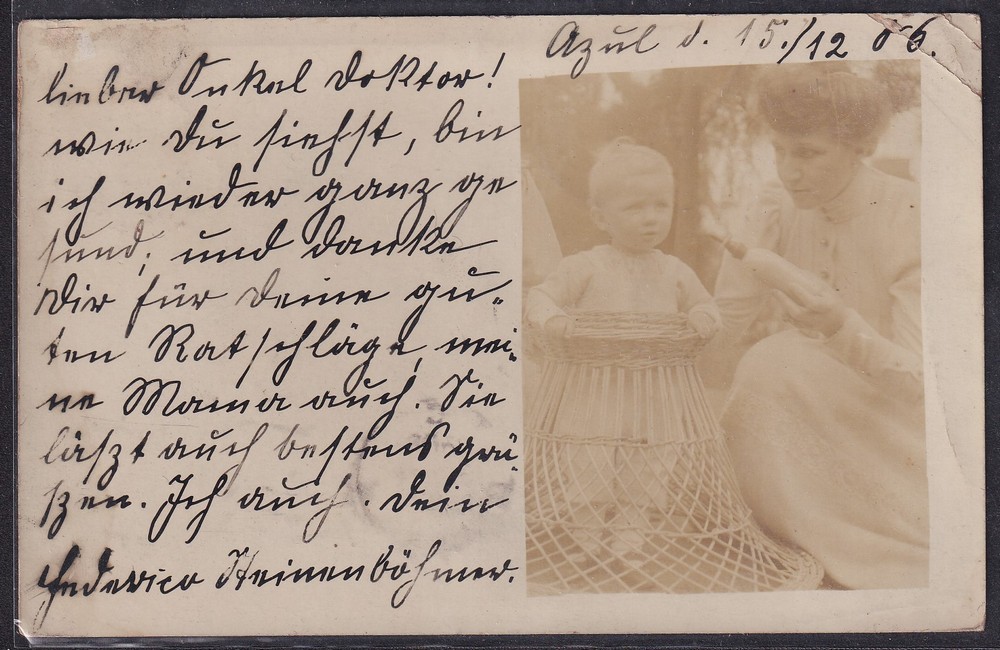 Azul d. 15./12 06.
lieber Onkel Doktor!
wie Du siehst, bin
ich wieder ganz ge
sund; und danke
Dir für Deine gu-
ten Ratschläge, mei-
ne Mama auch. Sie
läszt auch bestens grü-
szen. Ich auch. Dein
Federico Steinenböhmer.